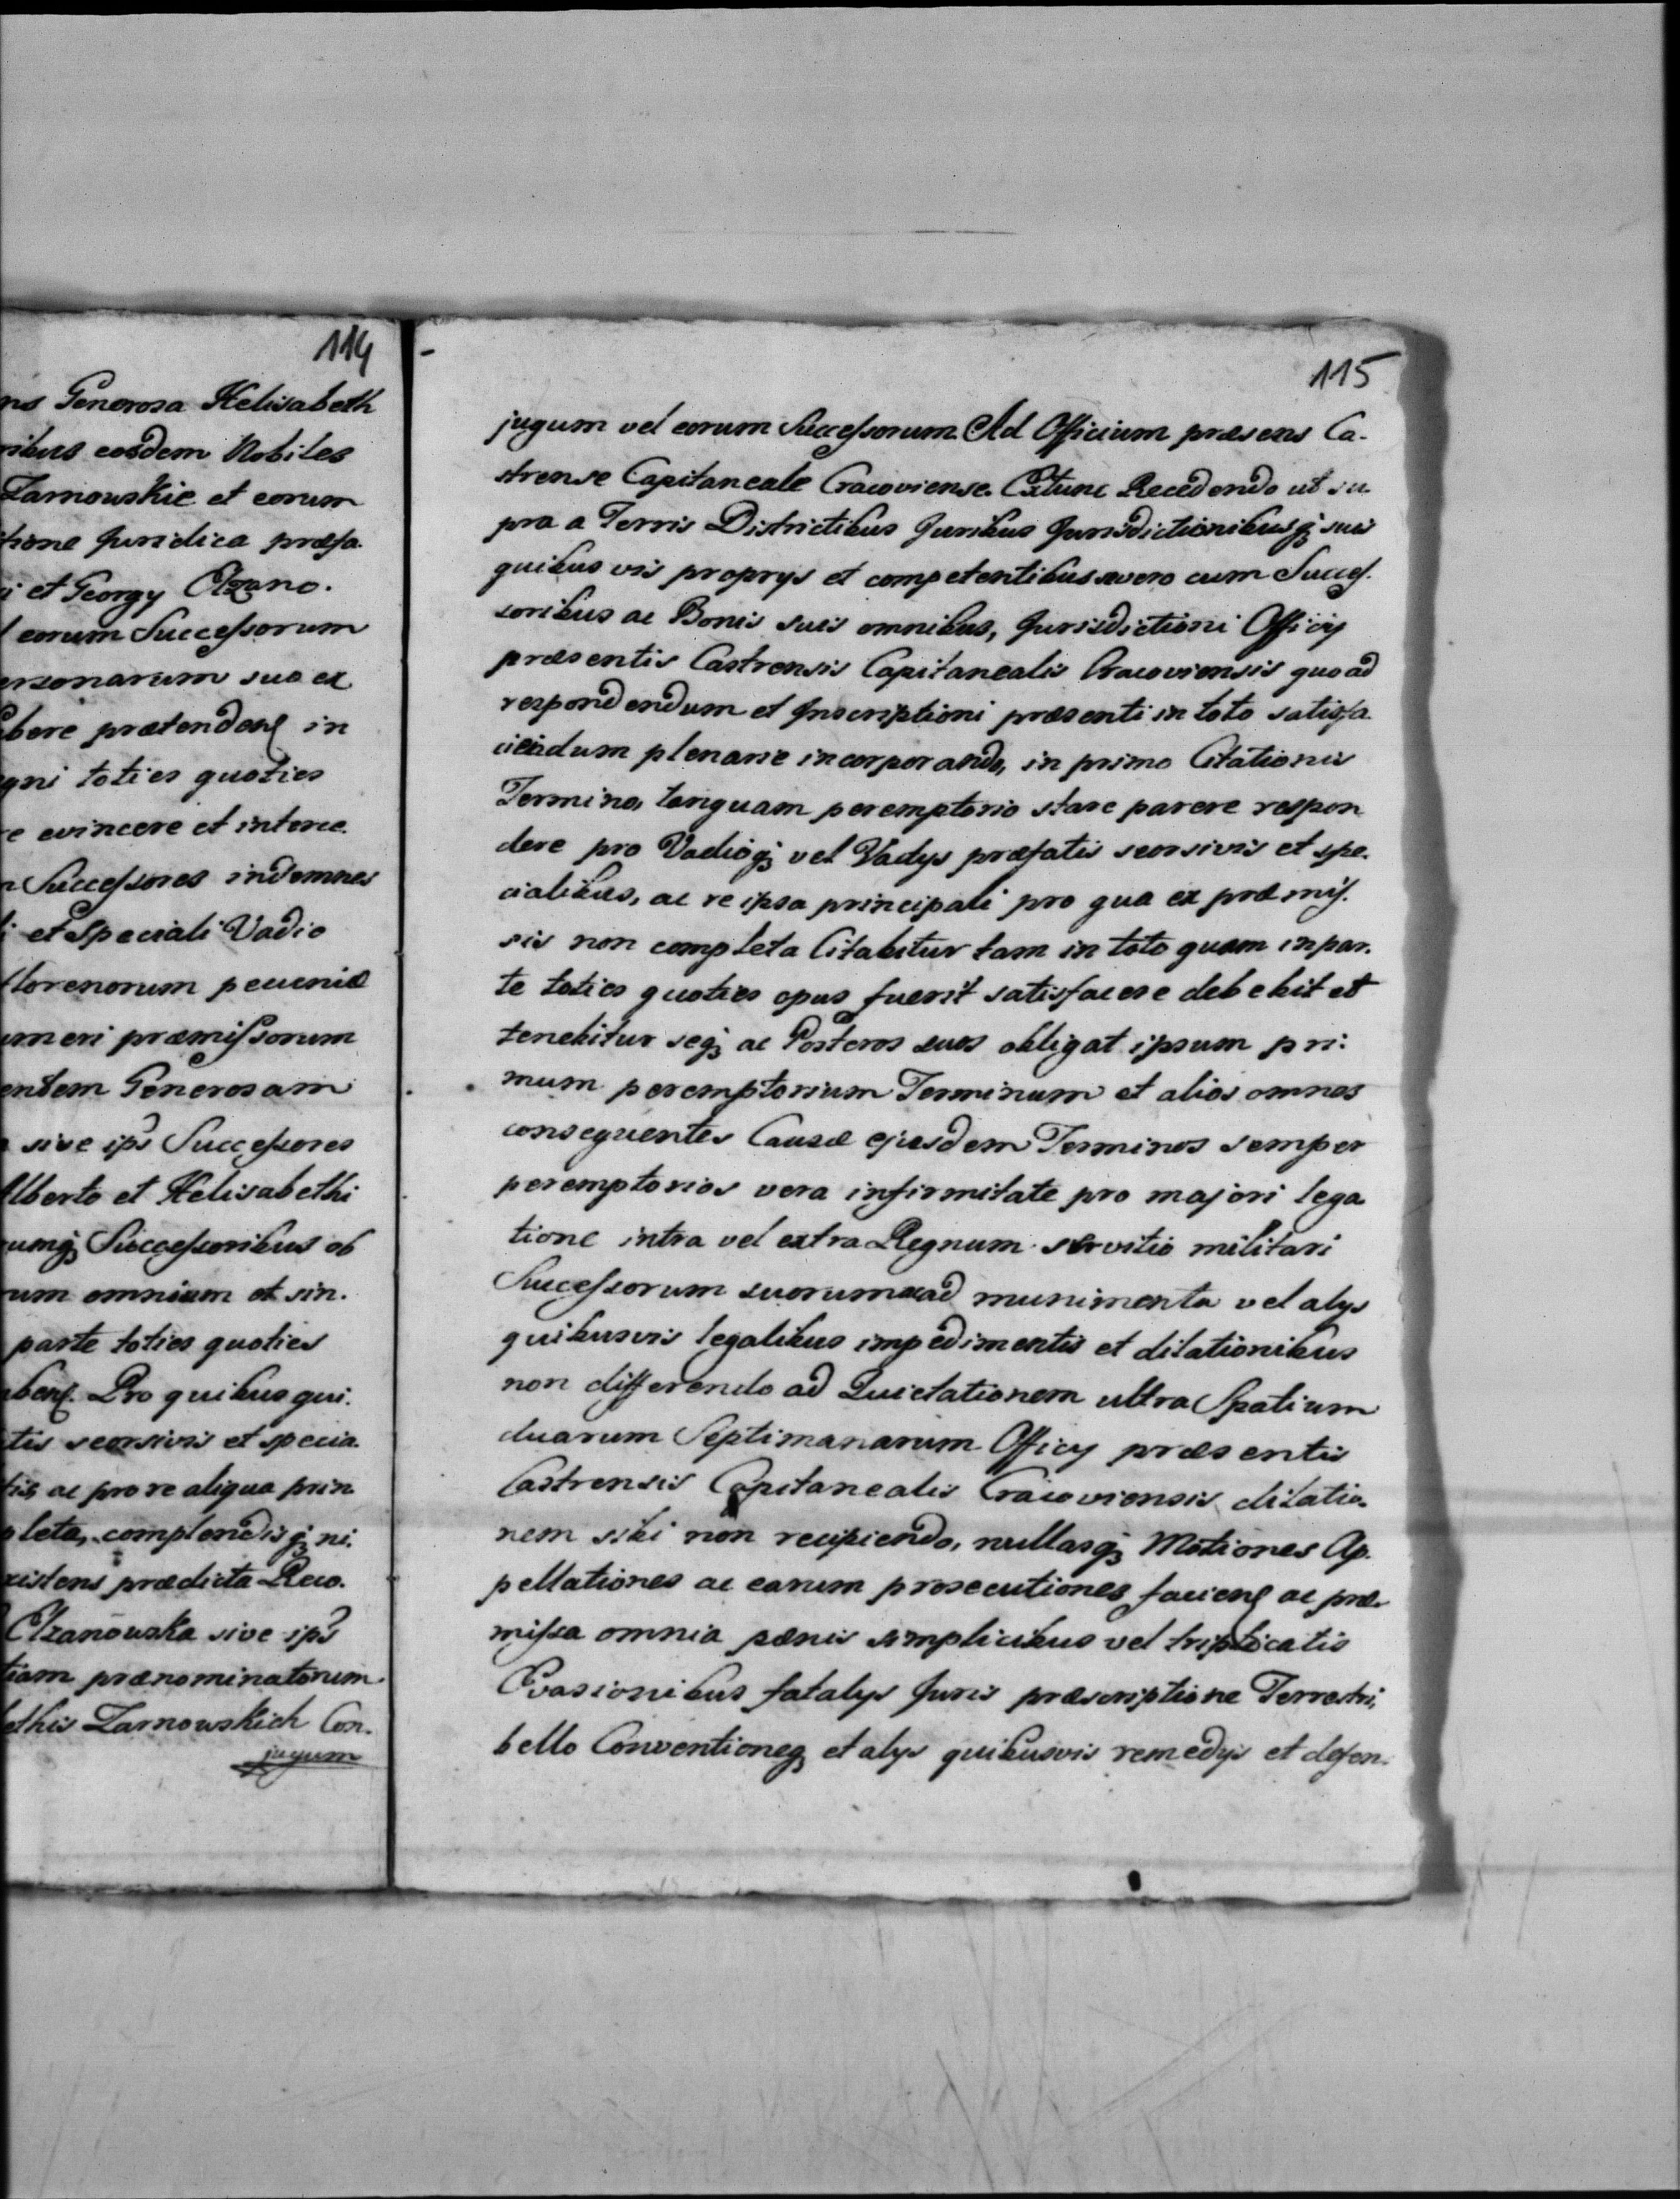 114
ns Generosa Helisabeth
ribus eosdem Nobiles
Zarnowskie et eorum
tione Juridica præfa.
i et Georgy Olzano.
l eorum Successorum
ersonarum sua ex
bere prætendens in
gni toties quoties
re evincere et interce.
n Successores indemnes
i et Speciali Vadio
florenorum pecuniæ
umeri præmissorum
entem Generosam
sive ips Successores
Alberto et Helisabethi
umq; Successoribus ob
rum omnium et sin.
parte toties quoties
ebens. Pro quibus qui.
tis seorsivis et specia.
tis ac pro re aliqua prin
pleta, complendisq; ni.
xistens prædicta Reco.
Olzanowska sive ips
tiam prænominatorum
ethis Zarnowskich Con.
jugum
115
jugum vel eorum Successorum Ad Officium præsens Ca.
strense Capitaneale Cracoviense. Extunc Recedendo ut su
pra a Terris Districtibus Juribus Jurisdictionibusq; suis
quibus vis proprys et competentibus severo cum Succes.
soribus ac Bonis suis omnibus, Jurisdictioni Officy
præsentis Castrensis Capitanealis Cracoviensis quoad
respondendum et Inscriptioni præsenti in toto satisfa.
ciendum plenarie incorporando, in primo Citationis
Termino, tanquam peremptorio stare parere respon
dere pro Vadioq; vel Vadys præfatis seorsivis et spe.
cialibus, ac re ipsa principali pro qua ex præmis.
sis non completa Citabitur tam in toto quam in par.
te toties quoties opus fuerit satisfacere debebit et
tenebitur seq; ac Posteros suos obligat ipsum pri.
mum peremptorium Terminum et alios omnes
consequentes Causæ ejusdem Terminos semper
peremptorios vera infirmitate pro majori lega
tione intra vel extra Regnum servitio militari
Successorum suorum ad munimenta vel alys
quibusvis legalibus impedimentis et dilationibus
non differendo ad Quietationem ultra Spatium
duarum Septimanarum Officy præsentis
Castrensis Capitanealis Cracoviensis dilatio.
nem sibi non recipiendo, nullasq; Motiones Ap.
pellationes ac earum prosecutiones faciens ac præ.
missa omnia pænis simplicibus vel triplicatis
Evasionibus fatalys Juris præscriptione Terrestri,
bello Conventioneq; et alys quibusvis remedys et defen.